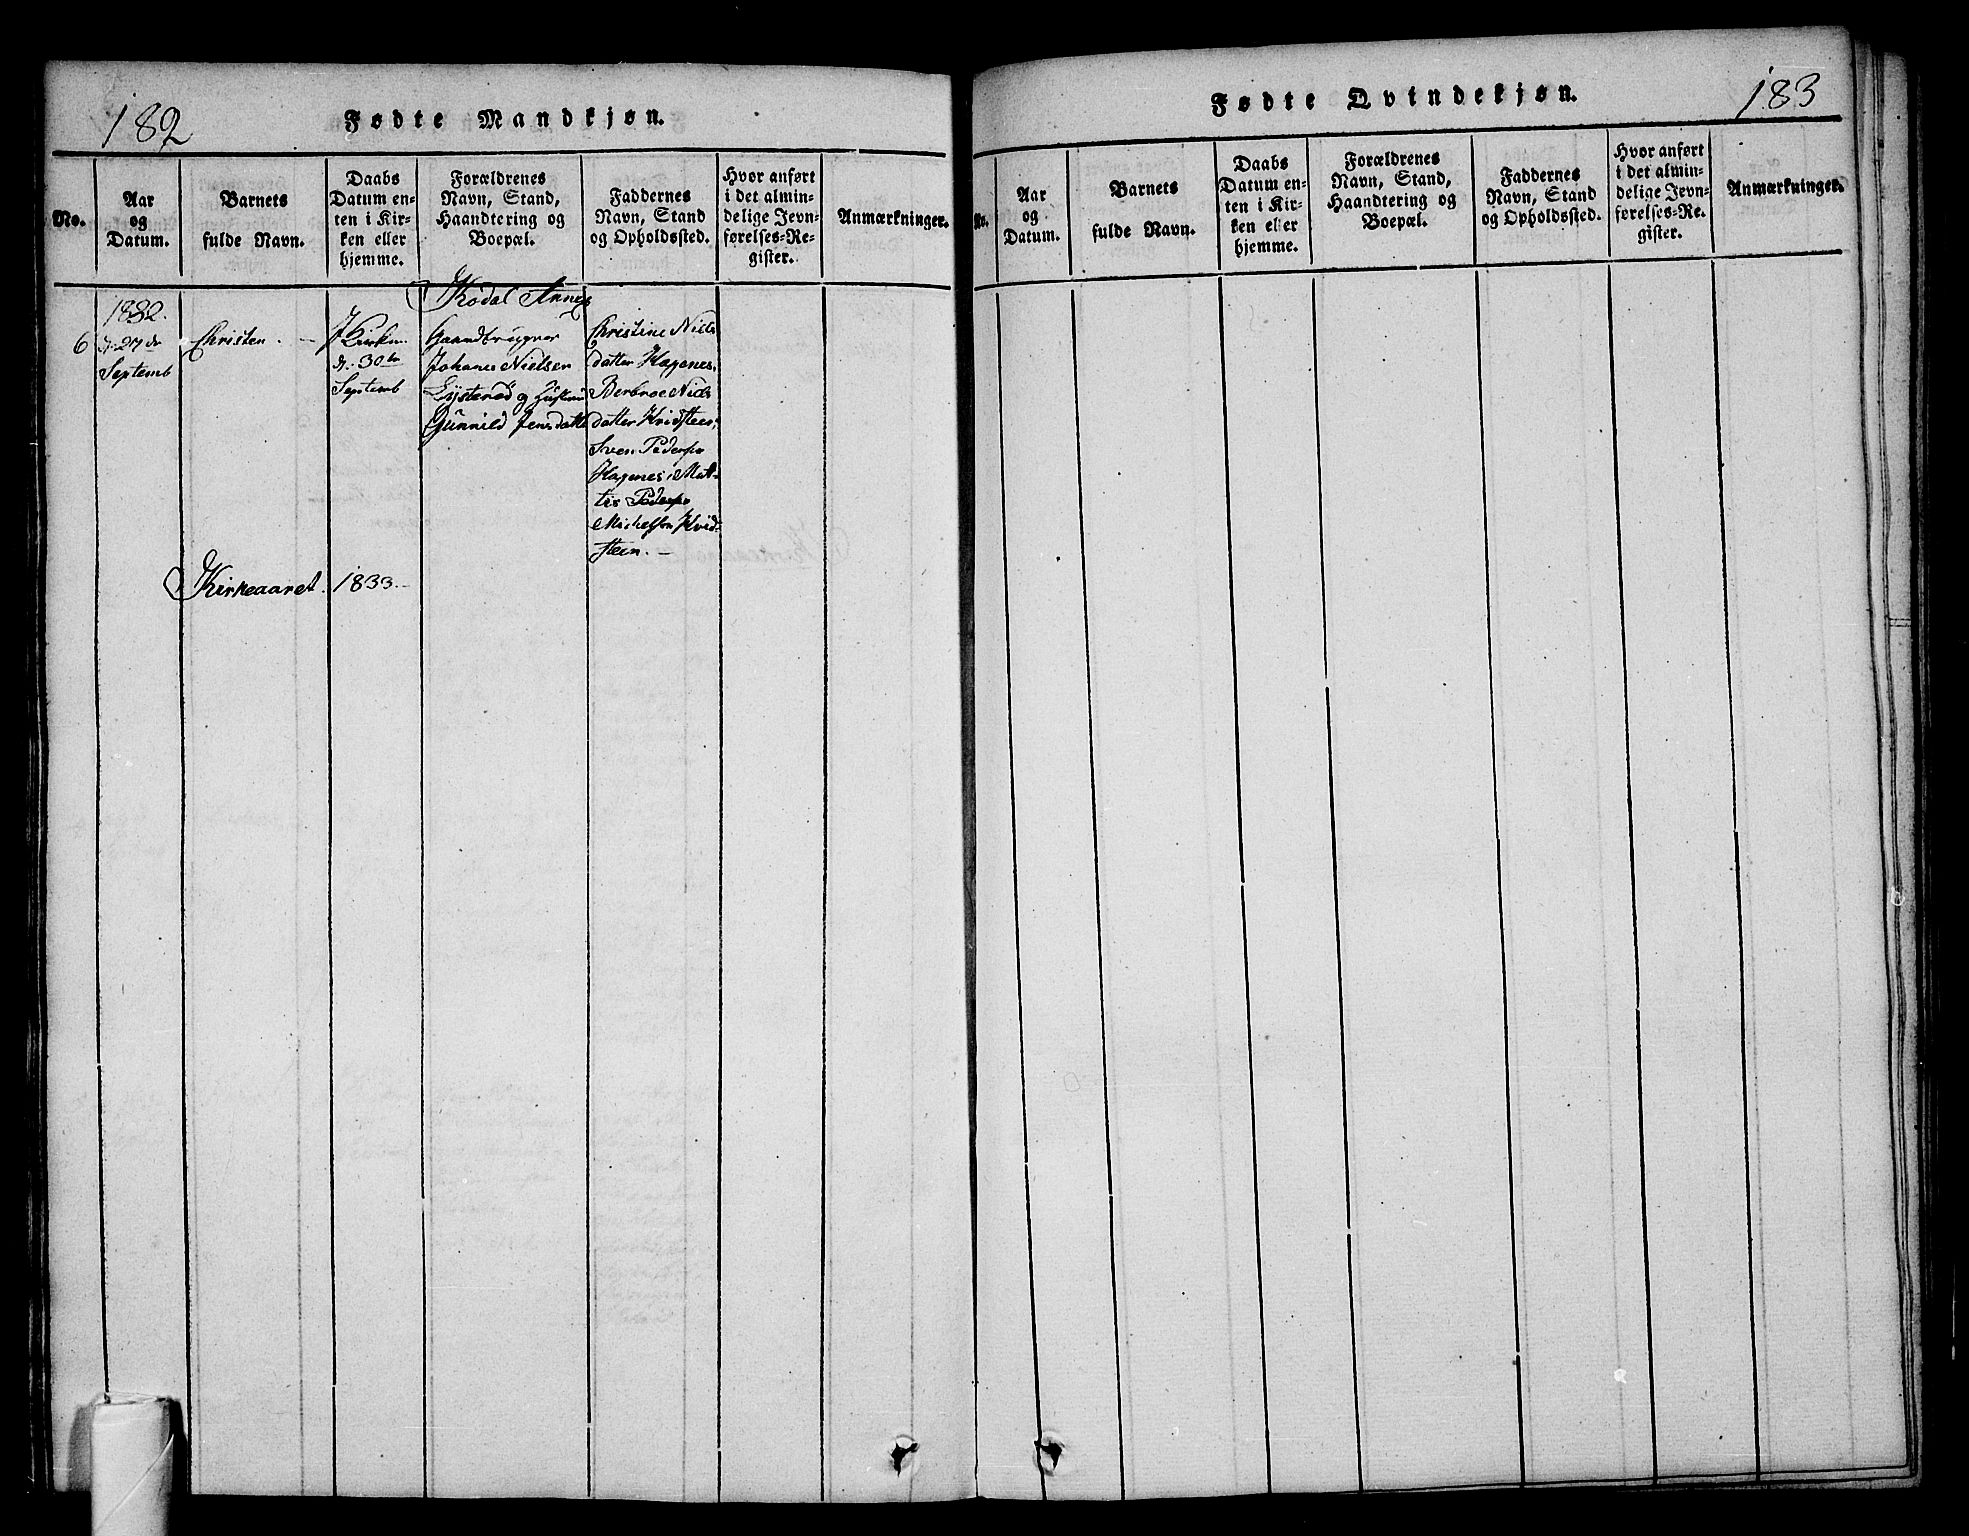 182
Fødte Mandkjøn.
No.
Aar
og
Datum.
Barnets
fulde Navn.
Daabs
Datum en-
ten i Kir-
ken eller
hjemme.
Forældrenes
Navn, Stand,
Haandtering og
Boepæl.
Faddernes
Navn, Stand
og Opholdssted.
Hvor anført
i det almin-
delige Jevn-
førelses-Re-
gister.
Anmærkninger.
Kodal Annex
6
1832.
d. 27de
Septemb
Christen. -
I Kirken
d. 30te
Septemb
Gaardbrugner
Johanes Nielsen
Lysterød og Hustru
Gunnild Jensdatte
Christine Niels
datter Hagenes,
Berbroe Niels
datter Kvidsteen,
Sven Pederse
Hagenes, Mat-
tis Pederse
Michelsen Kvid-
steen. -
Kirkeaaret. 1833. -
183
Fødte Qvindekjøn.
No.
Aar
og
Datum.
Barnets
fulde Navn.
Daabs
Datum en-
ten i Kir-
ken eller
hjemme.
Forældrenes
Navn, Stand,
Haandtering og
Boepæl.
Faddernes
Navn, Stand
og Opholdssted.
Hvor anført
i det almin-
delige Jevn-
førelses-Re-
gister.
Anmærkninger.